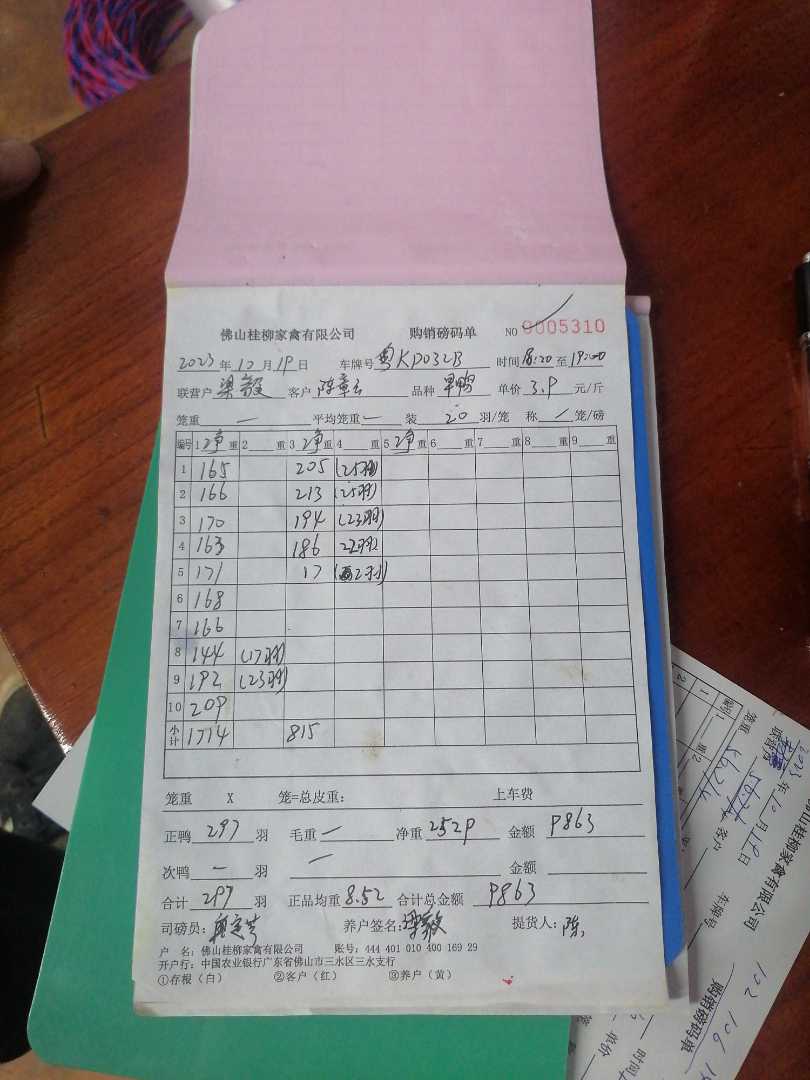 佛山桂柳家禽有限公司 购销磅码单 NO 0005310
2023年10月19日 车牌号 粤KD032B 时间 18:20 至 19:00
联营户 梁毅 客户 品种 单价 3.9 元/斤
笼重 一 平均笼重 一 装 20 羽/笼 称 / 笼/磅
编号 1 净重 2 重 3 净重 4 重 5 净重 6 重 7 重 8 重 9 重
1 165 205 (25羽)
2 166 213 (25羽)
3 170 194 (23羽)
4 163 186 22羽
5 171 17 2羽)
6 168
7 166
8 144 (17羽)
9 192 (23羽)
10 209
小计 1714 815
笼重 X 笼=总皮重: 上车费
正鸭 297 羽 毛重 一 净重 2529 金额 9863
次鸭 一 羽 一 金额
合计 297 羽 正品均重 8.52 合计总金额 9863
司磅员: 养户签名: 梁毅 提货人: 陈
户 名: 佛山桂柳家禽有限公司 账号: 444 401 010 400 169 29
开户行: 中国农业银行广东省佛山市三水区三水支行
①存根(白) ②客户(红) ③养户(黄)
佛山桂柳家禽有限公司
购销磅码单
2023年10月19日
车牌号
时间
联营户
客户
单价
笼重
编号 1 重 2
1
2
122 106